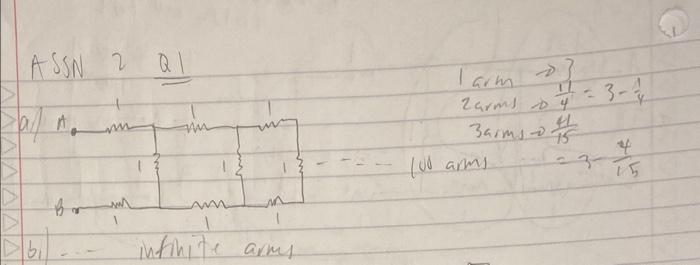 ASSN 2 Q1
1 arm → 3
2 arms → 11/4 = 3 - 1/4
3 arms → 41/15
= 3 - 4/15
a) A 1 1 1
1 1 1 ---- 100 arms
B 1 1 1
b) --- infinite arms